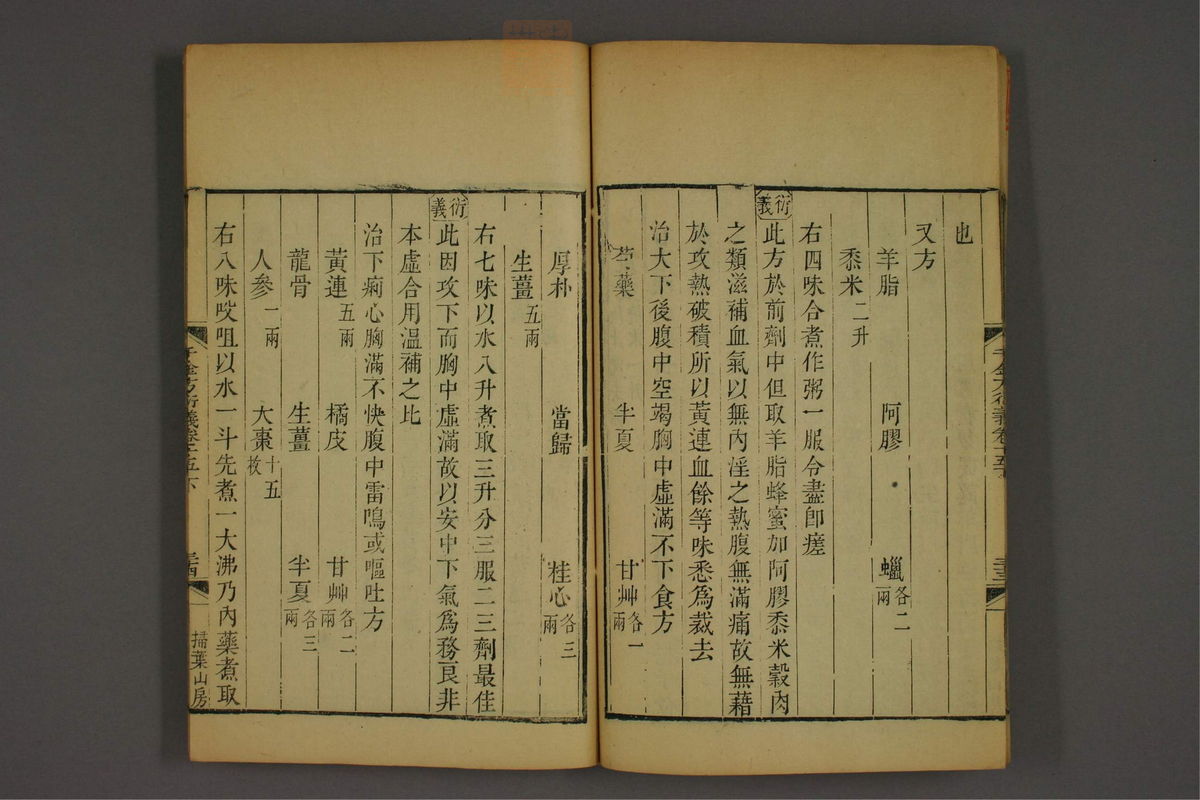 也
又方
羊脂 阿膠 蠟各二兩
黍米二升
右四味合煮作粥一服令盡卽瘥
衍義此方於前劑中但取羊脂蜂蜜加阿膠黍米穀肉
之類滋補血氣以無內淫之熱腹無滿痛故無藉
於攻熱破積所以黃連血餘等味悉爲裁去
治大下後腹中空竭胸中虛滿不下食方
芍藥 半夏 甘艸各一兩
厚朴 當歸 桂心各三兩
生薑五兩
右七味以水八升煮取三升分三服二三劑最佳
衍義此因攻下而胸中虛滿故以安中下氣爲務良非
本虛合用溫補之比
治下痢心胸滿不快腹中雷鳴或嘔吐方
黃連五兩 橘皮 甘艸各二兩
龍骨 生薑 半夏各三兩
人參一兩 大棗十五枚
右八味㕮咀以水一斗先煮一大沸乃內藥煮取
千金方衍義卷十五下
掃葉山房